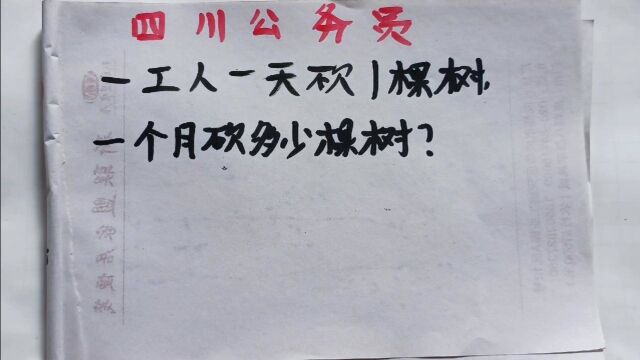 四川公务员
一工人一天砍1棵树,
一个月砍多少棵树?